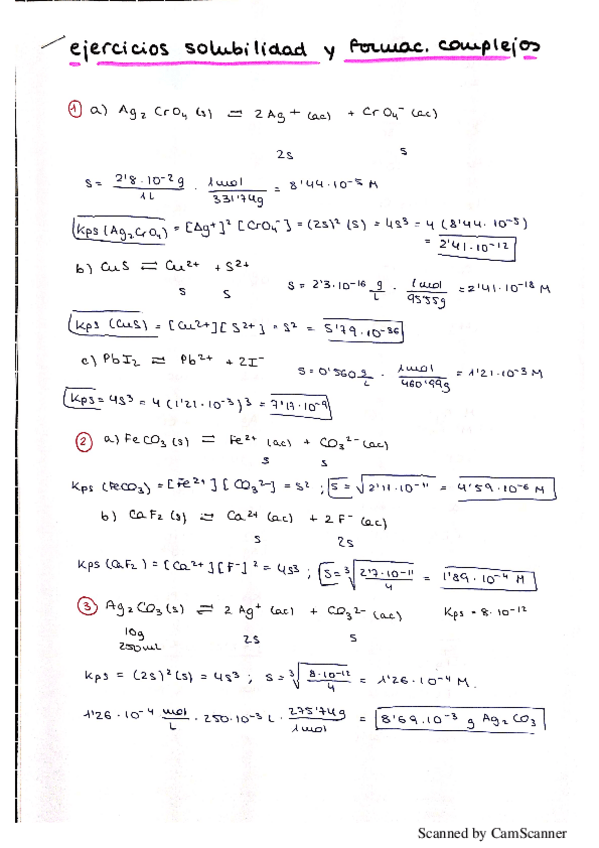 ejercicios solubilidad y formac. complejos
① a) Ag₂CrO₄ (s) ⇌ 2Ag⁺ (ac) + CrO₄⁻ (ac)
2s s
s = 2'8·10⁻² g / 1L · 1mol / 331'74g = 8'44·10⁻⁵ M
Kps (Ag₂CrO₄) = [Ag⁺]² [CrO₄⁻] = (2s)² (s) = 4s³ = 4 (8'44·10⁻⁵)
= 2'41·10⁻¹²
b) CuS ⇌ Cu²⁺ + S²⁺
s s
s = 2'3·10⁻¹⁶ g/L · 1mol / 95'55g = 2'41·10⁻¹⁸ M
Kps (CuS) = [Cu²⁺][S²⁺] = s² = 5'79·10⁻³⁶
c) PbI₂ ⇌ Pb²⁺ + 2I⁻
s = 0'560 g/L · 1mol / 460'99g = 1'21·10⁻³ M
Kps = 4s³ = 4 (1'21·10⁻³)³ = 7'17·10⁻⁹
② a) FeCO₃ (s) ⇌ Fe²⁺ (ac) + CO₃²⁻ (ac)
s s
Kps (FeCO₃) = [Fe²⁺] [CO₃²⁻] = s² ; s = √2'11·10⁻¹¹ = 4'59·10⁻⁶ M
b) CaF₂ (s) ⇌ Ca²⁺ (ac) + 2F⁻ (ac)
s 2s
Kps (CaF₂) = [Ca²⁺][F⁻]² = 4s³ ; s = ³√(2'7·10⁻¹¹ / 4) = 1'89·10⁻⁴ M
③ Ag₂CO₃ (s) ⇌ 2Ag⁺ (ac) + CO₃²⁻ (ac) Kps = 8·10⁻¹²
10g
250mL
2s s
Kps = (2s)² (s) = 4s³ ; s = ³√(8·10⁻¹² / 4) = 1'26·10⁻⁴ M.
1'26·10⁻⁴ mol/L · 250·10⁻³ L · 275'74g / 1mol = 8'69·10⁻³ g Ag₂CO₃
Scanned by CamScanner